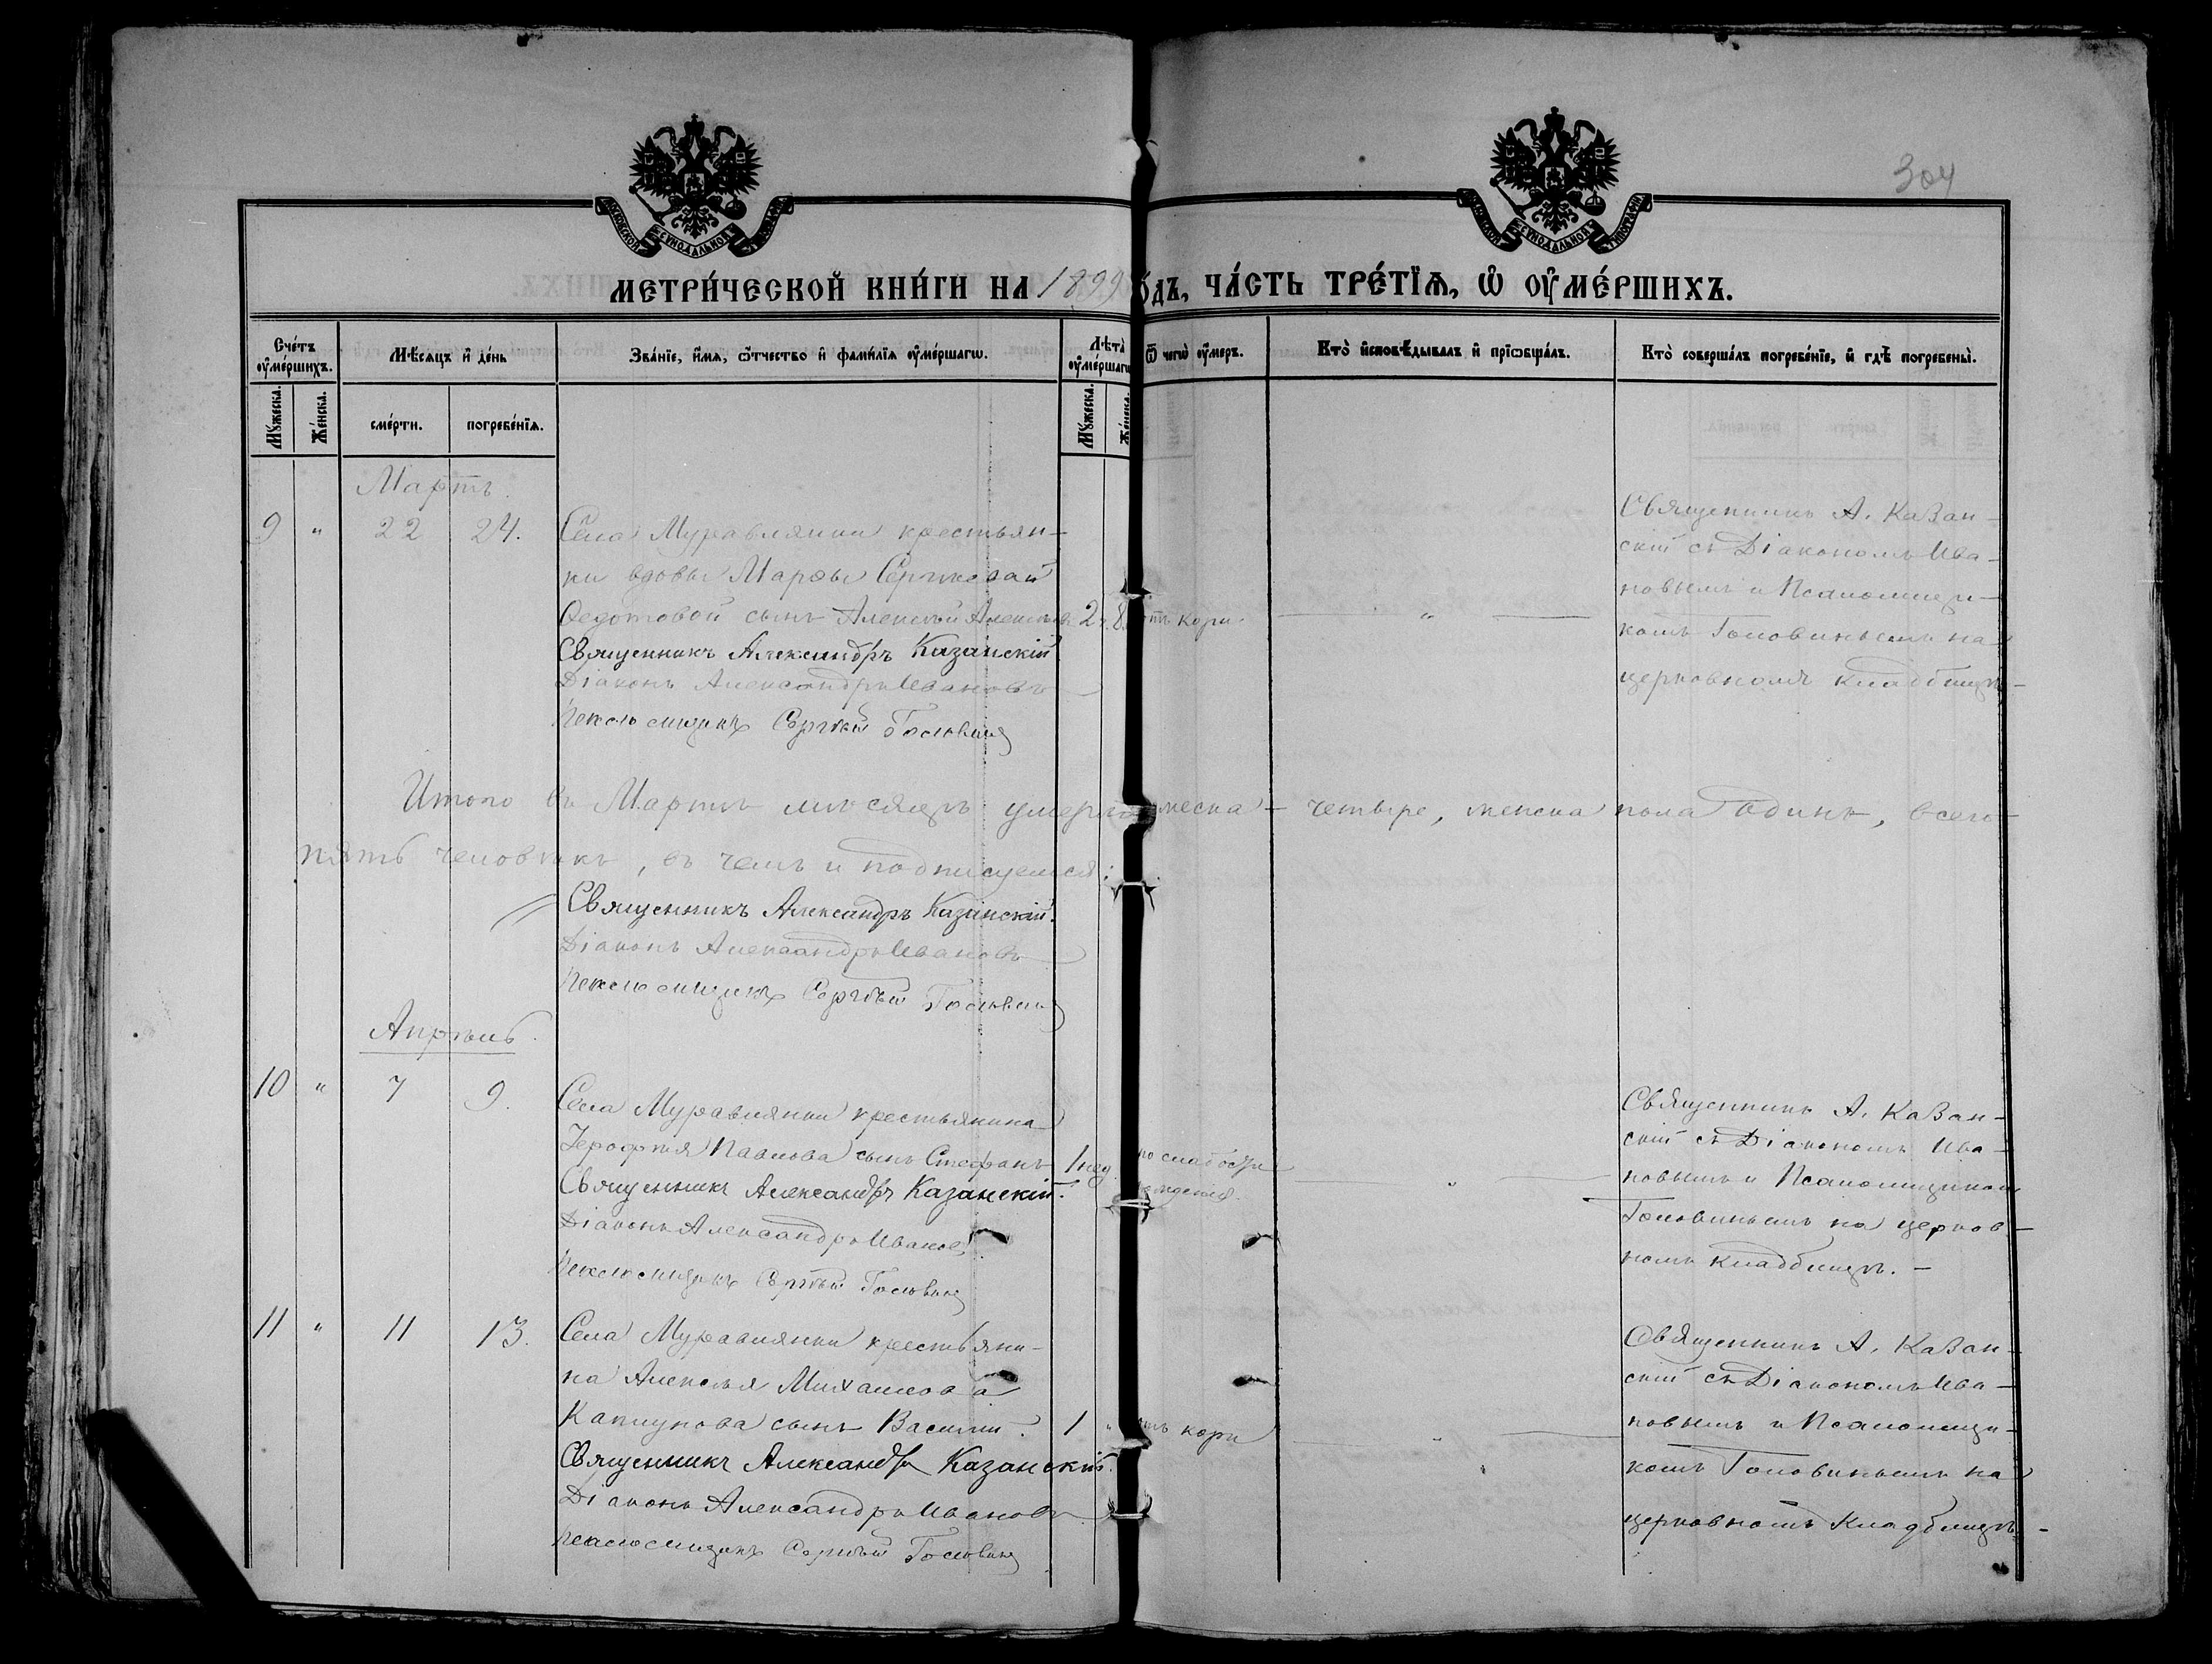 304
МОСКОВСКОЙ СѴНОДАЛЬНОЙ ТИПОГРАФІИ
МОСКОВСКОЙ СѴНОДАЛЬНОЙ ТИПОГРАФІИ
МЕТРИ́ЧЕСКОЙ КНИ́ГИ НА 1899 ГО́ДЪ, ЧА́СТЬ ТРЕ́ТЇѦ, Ѡ҆ ОУ҆МЕ́РШИХЪ.
Сче́тъ оу҆ме́ршихъ.
Мꙋ́жеска.
Же́нска.
Мѣ́сяцъ и҆ де́нь
сме́рти.
погребе́нїѧ.
Зва́нїе, и҆́мѧ, ѻ҆́тчество и҆ фами́лїѧ оу҆ме́ршагѡ.
Лѣ́та оу҆ме́ршагѡ
Мꙋ́жеска.
Же́нска.
Ѿ чегѡ̀ оу҆́меръ.
Кто̀ и҆сповѣ́дывалъ и҆ прїѡбща́лъ.
Кто̀ соверша́лъ погребе́нїе, и҆ гдѣ̀ погребены̀.
Мартъ.
9 " 22 24.
Села Муравлянки крестьян-
ки вдовы Марѳы Сергиковай
Ѳедотовой сынъ Алексѣй Алексѣев. 2 г. 8 отъ кори. "
Священникъ Александръ Казанскій
Діаконъ Александръ Ивановъ
Псаломщикъ Сергѣй Головинъ
Священникъ А. Казан-
скій съ Діакономъ Ива-
новымъ и Псаломщи-
комъ Головинымъ на
церковномъ кладбищѣ-
Итого въ Мартѣ мѣсяцѣ умерло мужеска - четыре, женска пола одинъ, всего
пять человѣкъ, въ чемъ и подписуемся:
Священникъ Александръ Казанскій.
Діаконъ Александръ Ивановъ
Псаломщикъ Сергѣй Головинъ
Апрѣль.
10 " 7 9.
Села Муравлянки крестьянина
Іерофея Павлова сынъ Стефанъ 1 нед. по слабости рожденія. "
Священникъ Александръ Казанскій.
Діаконъ Александръ Ивановъ
Псаломщикъ Сергѣй Головинъ
Священникъ А. Казан-
скій съ Діакономъ Ива-
новымъ и Псаломщикомъ
Головинымъ на церков-
номъ кладбищѣ. -
11 " 11 13.
Села Муравлянки крестьяни-
на Алексѣя Михаилова
Капцунова сынъ Василій. 1 " отъ кори "
Священникъ Александръ Казанскій.
Діаконъ Александръ Ивановъ
Псаломщикъ Сергѣй Головинъ
Священникъ А. Казан-
скій съ Діакономъ Ива-
новымъ и Псаломщи-
комъ Головинымъ на
церковномъ Кладбищѣ -